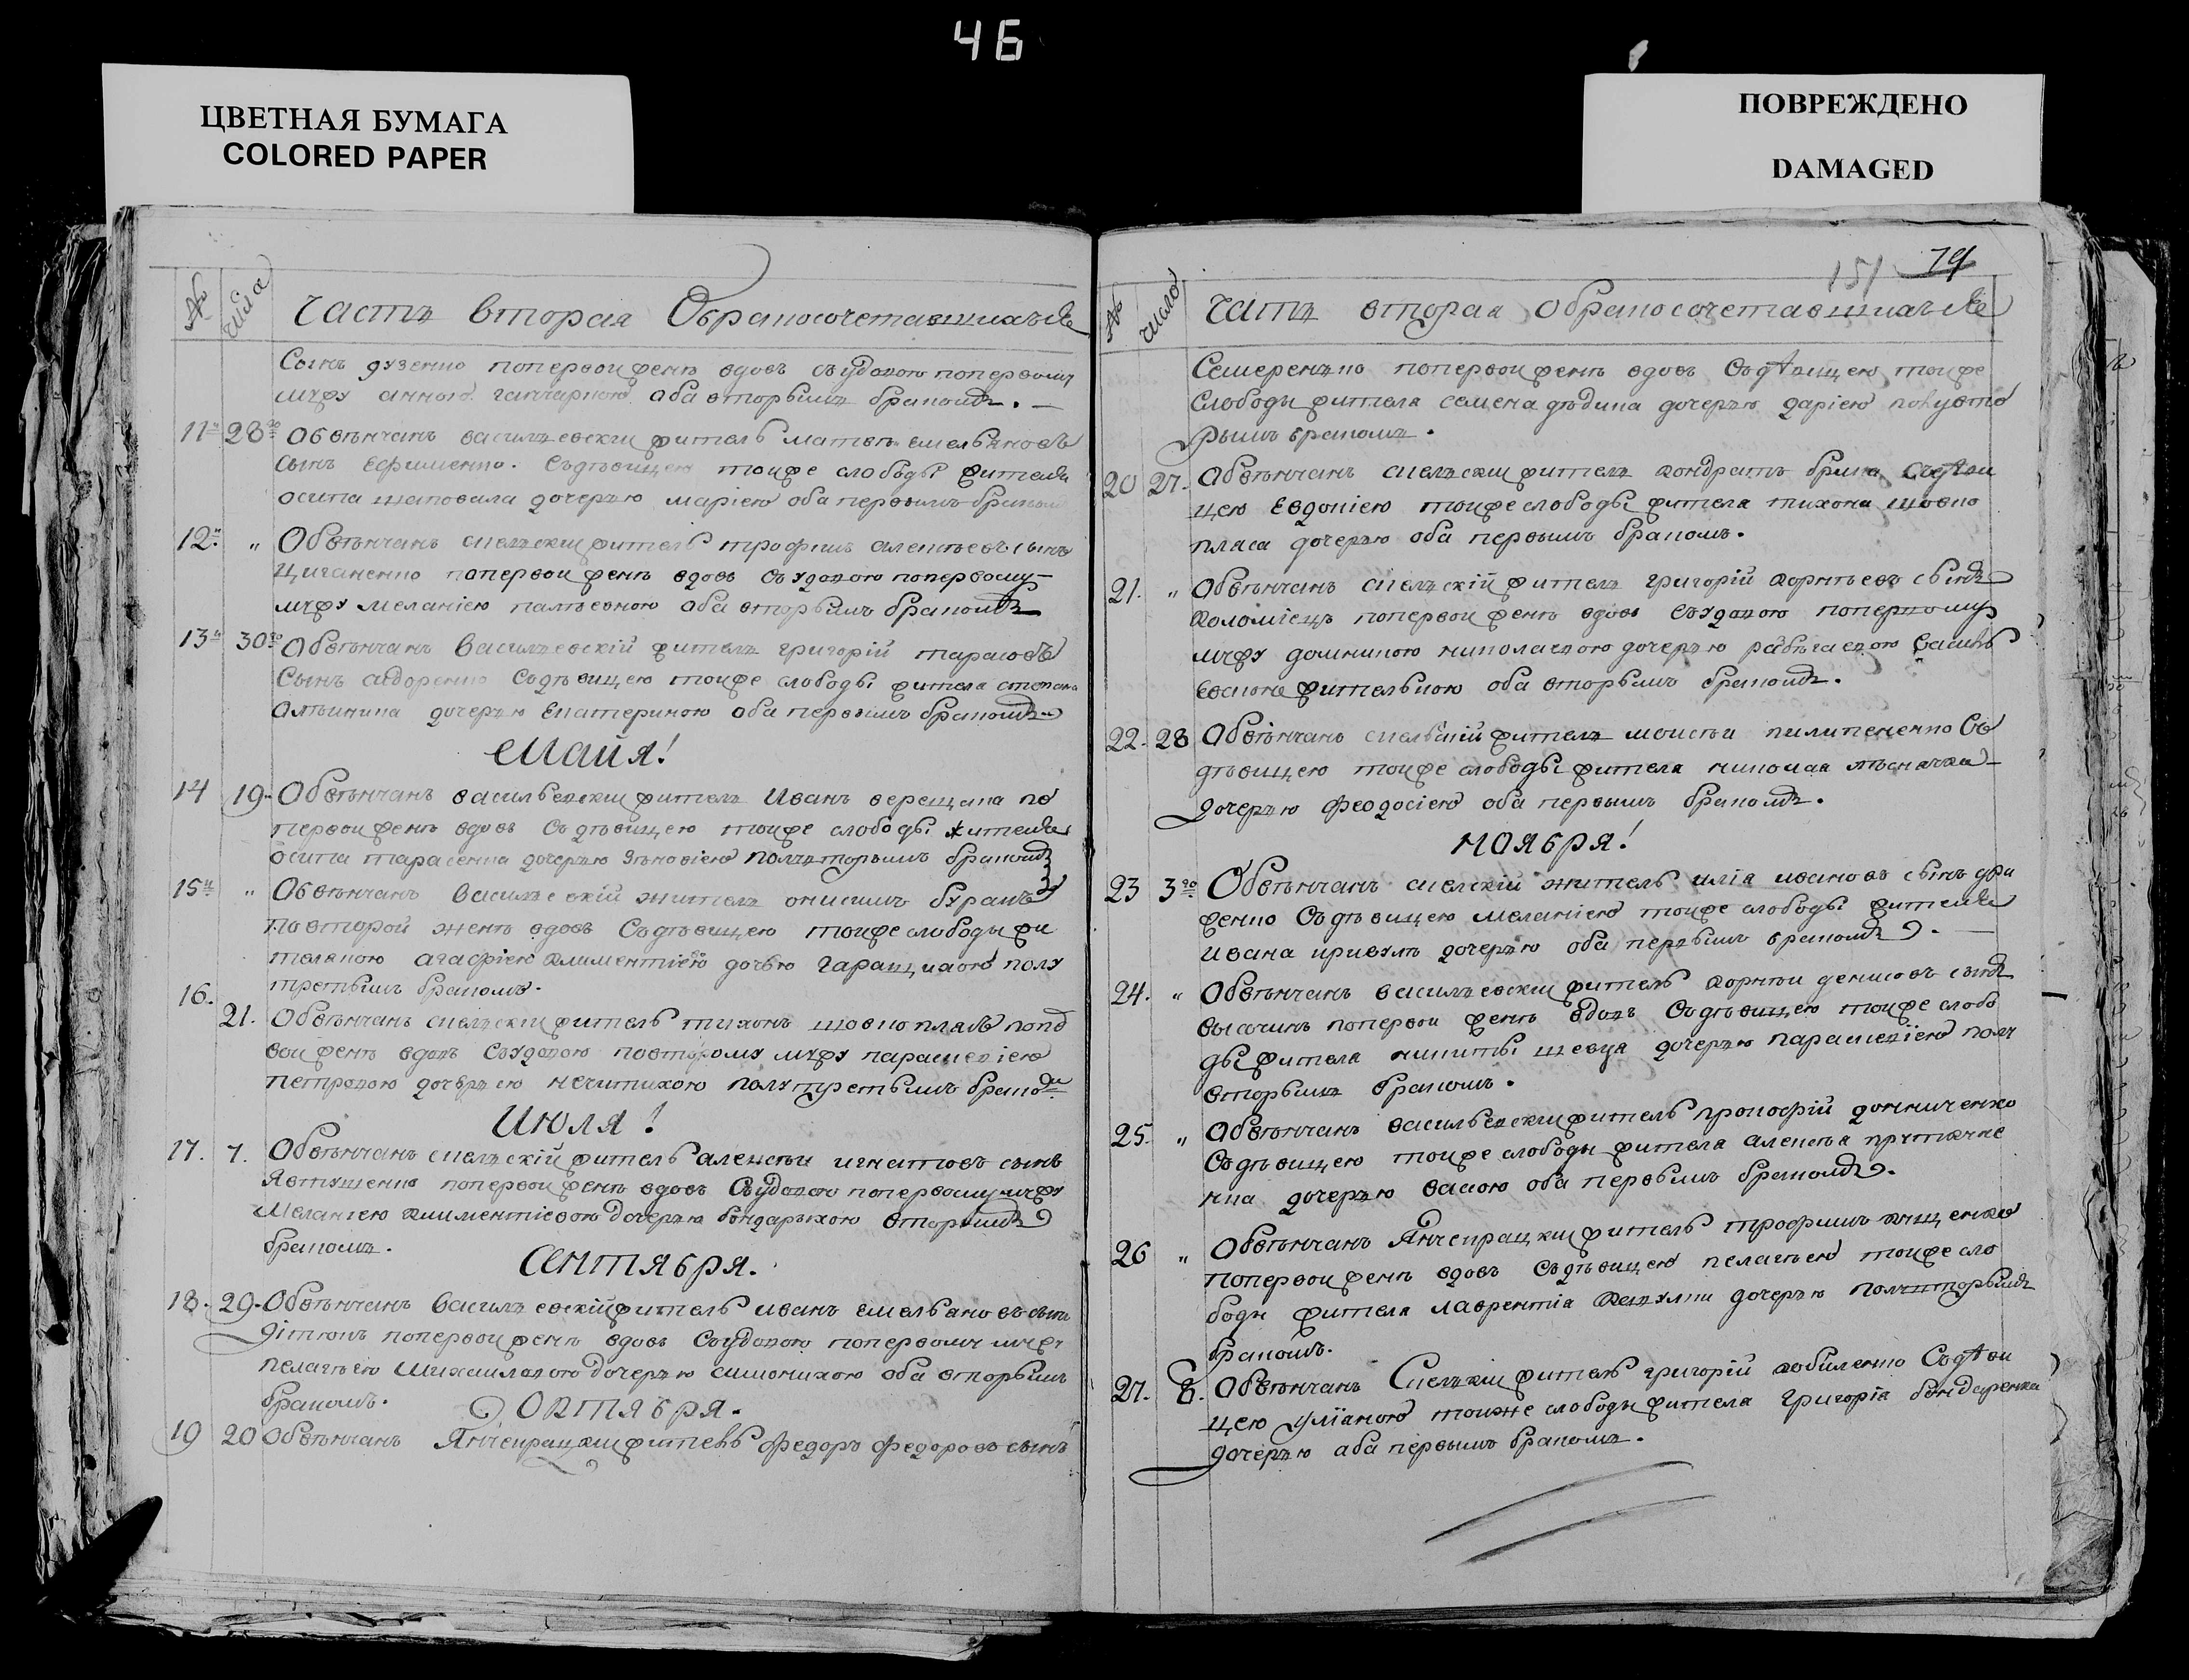 46
ЦВЕТНАЯ БУМАГА
COLORED PAPER
ПОВРЕЖДЕНО
DAMAGED
№ числа Часть вторая Обракосочетавшихъся
сынъ дузенко попервои женѣ вдовъ съ удовою попервому
мужу анною ганчаркою оба вторымъ бракомъ. —
11й 28го Обвѣнчанъ васильевскии житель матвеи емельяновъ
сынъ Ефименко. съ дѣвицею тоиже слободы жителя
осипа шаповала дочерью маріею оба первымъ бракомъ
12й „ Обвѣнчанъ спаскии житель трофимъ алексѣевъ сынъ
Циганенко поперви женѣ вдовъ съ удовою попервому
мужу меланіею палѣевною оба вторымъ бракомъ
13й 30го Обвѣнчанъ Васильевскій житель григорій тарасовъ
Сынъ сидоренко съ дѣвицею тоиже слободы жителя степана
дочерью Екатериною оба первымъ бракомъ
Маия!
14 19 Обвѣнчанъ васильевскии житель Иванъ верещака по
первои женѣ вдовъ съ дѣвицею тоиже слободы жителя
осипа тарасенка дочерью Зѣновіею полувторымъ бракомъ
15й „ Обвѣнчанъ Васильевскій житель онисимъ буракъ
повторой женѣ вдовъ съ дѣвицею тоиже слободы жи
телькою агафіею климентіевою дочерью гаращиково полу
третьимъ бракомъ.
16. 21. Обвѣнчанъ спаскии житель тихонъ шовкоплясъ попер
вои женѣ вдовъ съ удовою повторому мужу параскевіею
петровою дочерью нечитихою полутретьимъ бракомъ
Июля!
17. 7. Обвѣнчанъ спаскій житель алексѣи игнатовъ сынъ
Явтушенко поперви женѣ вдовъ съ удовою попервому мужу
Меланіею климентіевою дочерью бондарихою вторымъ
бракомъ.
Сентября.
18. 29. Обвѣнчанъ Васильевскій житель иванъ емельяновъ сынъ
поперви женѣ вдовъ съ удовою попервому мужу
пелагѣею михаиловою дочерью симонихою оба вторымъ
бракомъ.
Октября.
19 20 Обвѣнчанъ Янчекрацкии житель федоръ федоровъ сынъ
151 79
№ число Часть вторая обракосочетавшихъся
Семеренько поперви женѣ вдовъ съ дѣвицею тоиже
слободы жителя семена дѣдика дочерью даріею полувто
рымъ бракомъ.
20 27. Обвѣнчанъ спаскии житель кондратъ съ дѣви
цею Евдокіею тоиже слободы жителя тихона шовко
пляса дочерью оба первымъ бракомъ.
21. „ Обвѣнчанъ спаскій житель григорій корнѣевъ сынъ
коломіецъ поперви женѣ вдовъ съ удовою попервому
мужу домникою николаевою дочерью василь
евскою жителькою оба вторымъ бракомъ.
22. 28 Обвѣнчанъ спаскій житель моисѣи пилипененко съ
дѣвицею тоиже слободы жителя николая лѣсначка
дочерью феодосіею оба первымъ бракомъ.
Ноября!
23 3го Обвѣнчанъ спаскій житель илія ивановъ сынъ
женко съ дѣвицею меланіею тоиже слободы жителя
ивана дочерью оба первымъ бракомъ.
24. „ Обвѣнчанъ васильевскии житель корнѣи денисовъ сынъ
высочинъ поперви женѣ вдовъ съ дѣвицею тоиже слобо
ды жителя никиты шевца дочерью параскевіею полу
вторымъ бракомъ.
25. „ Обвѣнчанъ васильевскии житель прокофій донниченко
съ дѣвицею тоиже слободы жителя алексѣя
дочерью васою оба первымъ бракомъ.
26 „ Обвѣнчанъ Янчекрацкии житель трофимъ кищенко
поперви женѣ вдовъ съ дѣвицею пелагѣею тоиже сло
боды жителя лаврентія дочерью полувторымъ
бракомъ.
27. 8. Обвѣнчанъ Спаскии житель григорій кобиленко съ дѣви
цею уліаною тоиже слободы жителя григорія бондаренка
дочерью оба первымъ бракомъ.